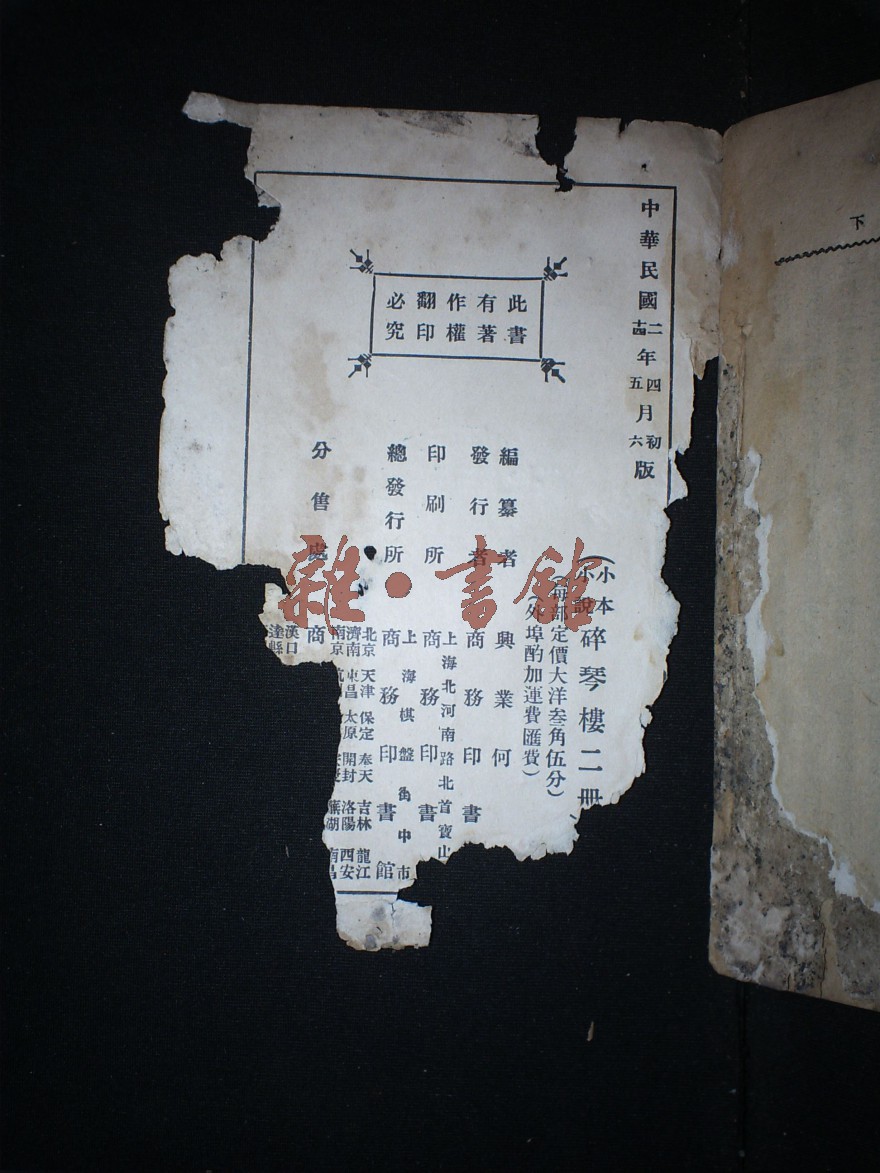 中華民國二十四年四五月初六版
此書
有著
作權
翻印
必究
(小本小說)碎琴樓二冊
(每部定價大洋叁角伍分)
(外埠酌加運費匯費)
編纂者 興業何
發行者 商務印書
印刷所 上海北河南路北首寶山 商務印書
總發行所 上海棋盤街中市 商務印書館
分售處 商
北京 天津 保定 奉天 吉林 龍江
濟南 東昌 太原 開封 洛陽 西安
南京 蕪湖 南昌
漢口
達縣
下
雜·書館